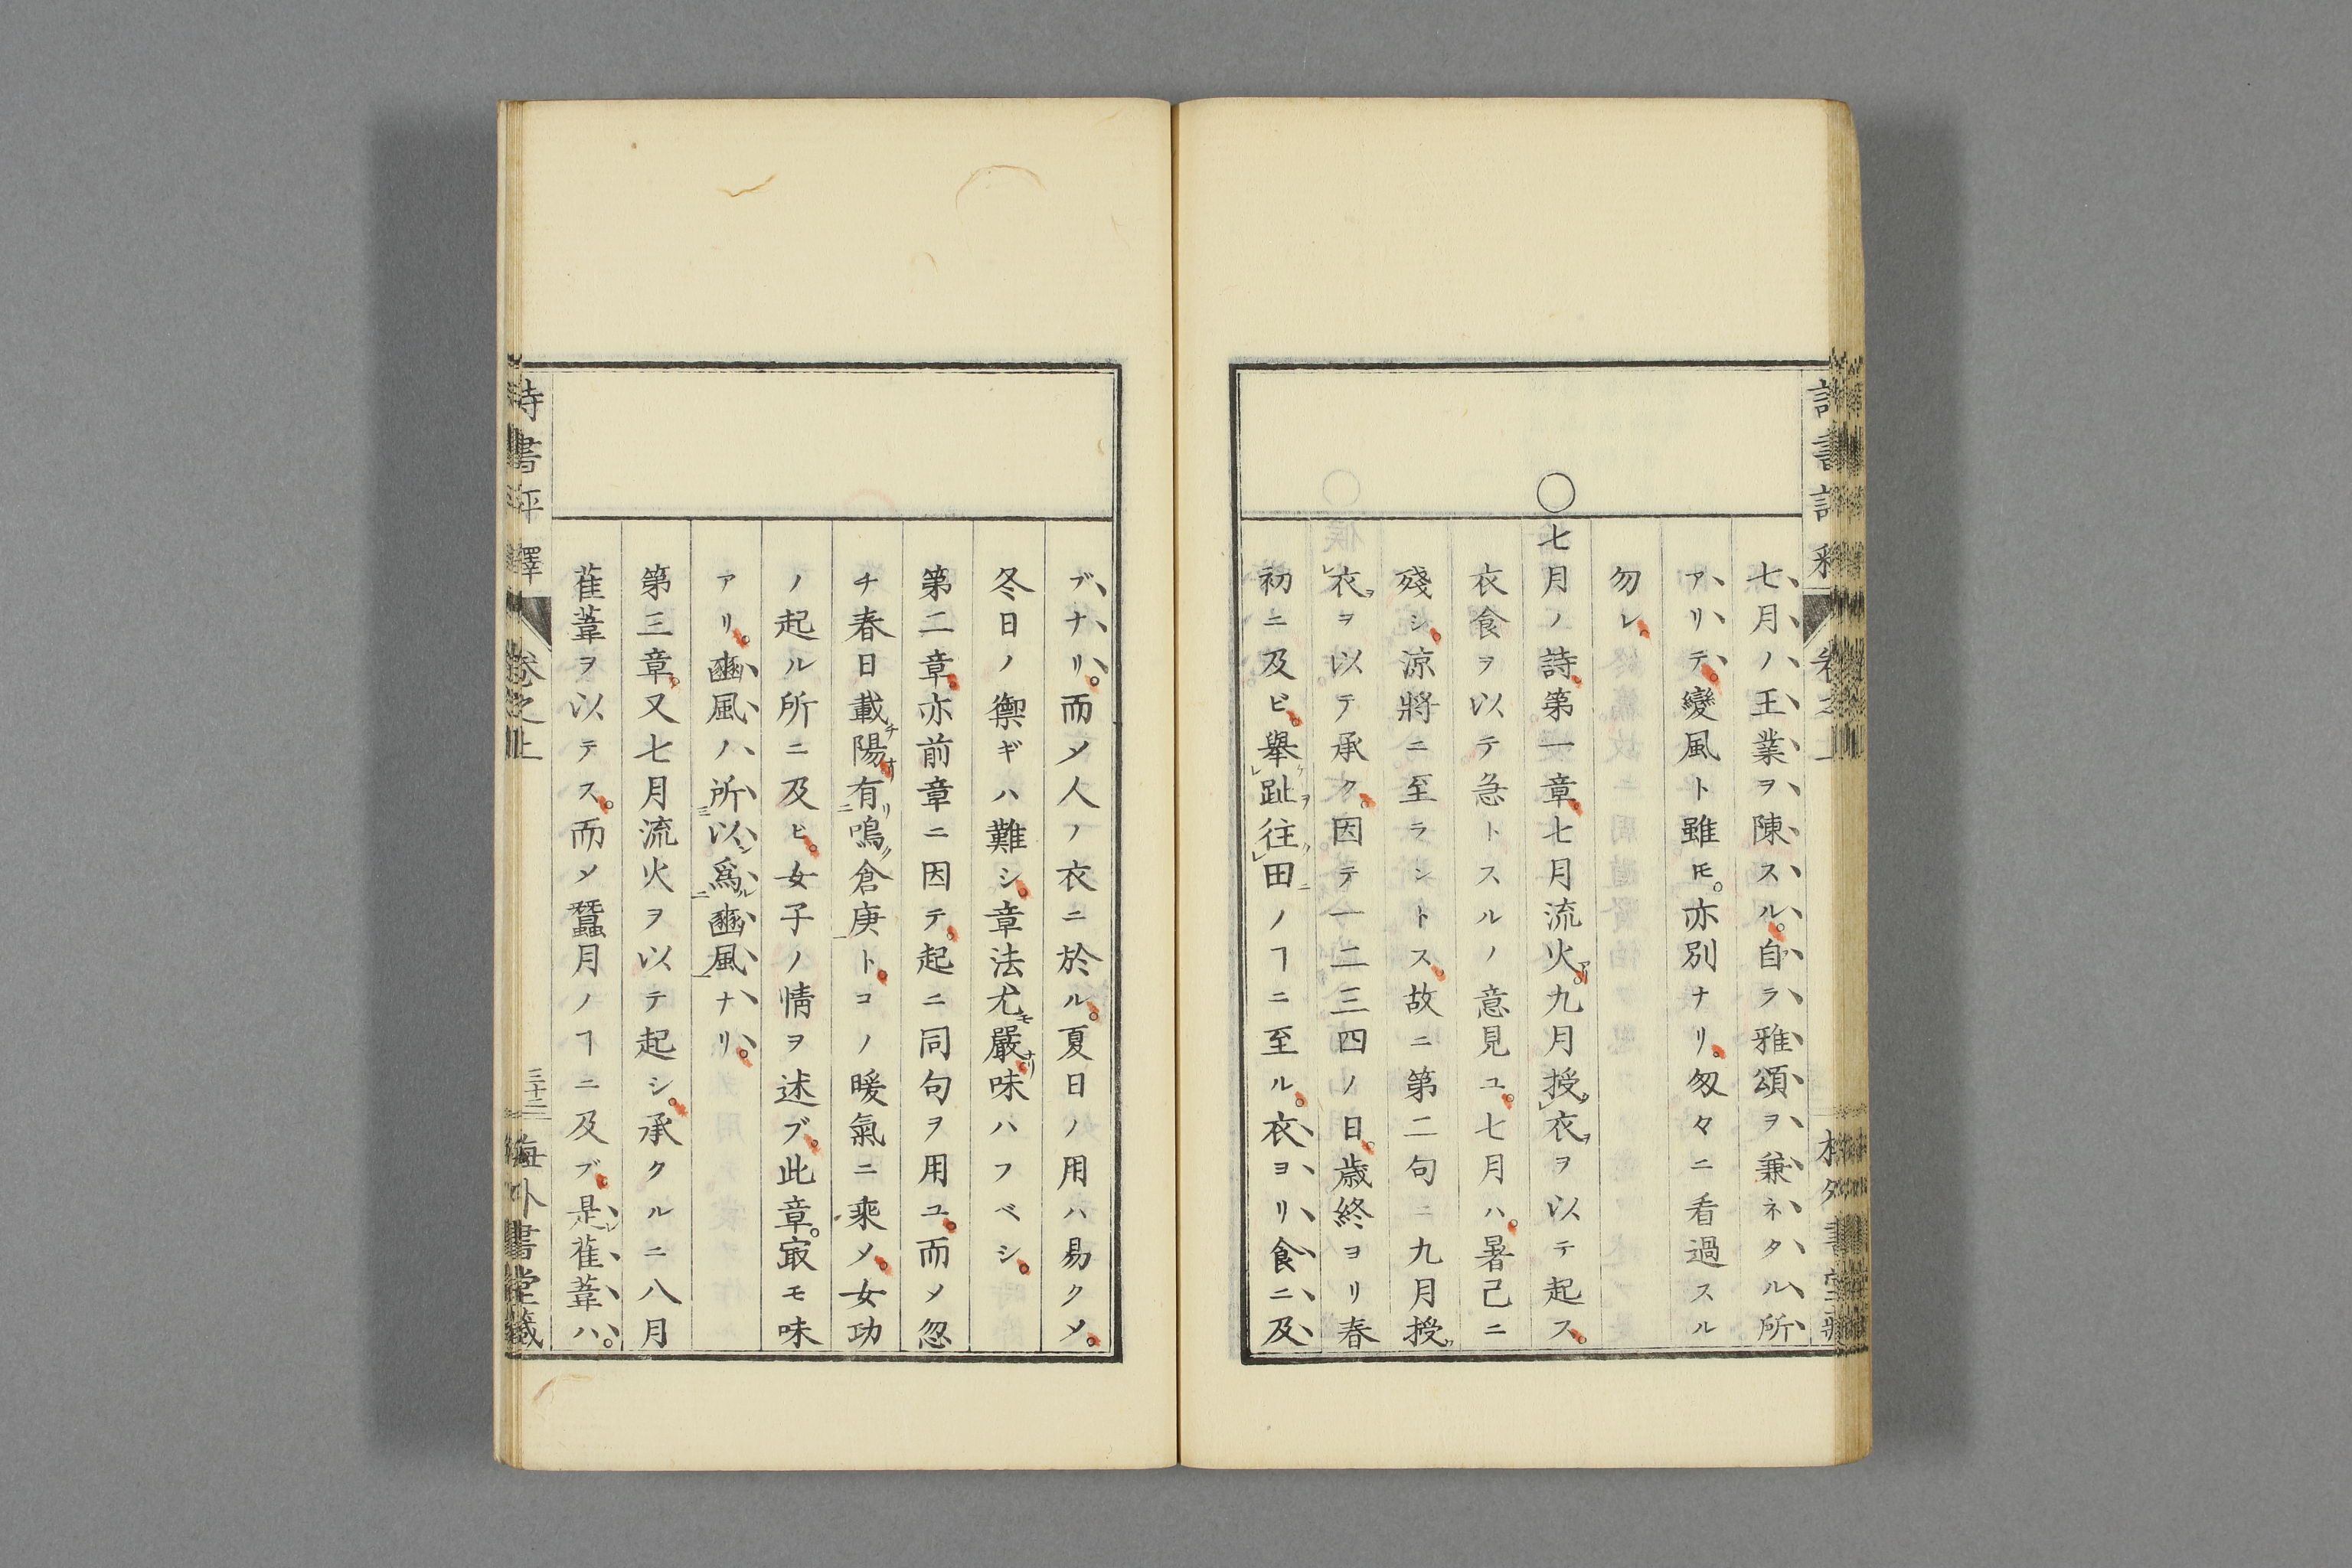 七月ノ王業ヲ陳スル。自ラ雅頌ヲ兼ネタル所
アリテ。變風ト雖𪜈。亦別ナリ。匆々ニ看過スル
勿レ。
〇七月ノ詩。第一章。七月流火アリ。九月授レ衣ヲ以テ起ス。
衣食ヲ以テ急トスルノ意見ユ。七月ハ。暑己ニ
殘シ。涼將ニ至ラントス。故ニ第二句ニ九月授
レ衣ヲ以テ承ク。因テ一二三四ノ日。歳終ヨリ春
初ニ及ビ。舉レ趾往レ田ノヿニ至ル。衣ヨリ食ニ及
ブナリ。而メ人ノ衣ニ於ル。夏日ノ用ハ易クメ。
冬日ノ禦ギハ難シ。章法尤嚴味ハフベシ。
第二章。亦前章ニ因テ。起ニ同句ヲ用ユ。而メ忽
チ春日載陽有鳴倉庚ト。コノ暖氣ニ乘メ。女功
ノ起ル所ニ及ビ。女子ノ情ヲ述ブ。此章。㝡モ味
アリ。豳風ノ所以爲豳風ナリ。
第三章。又七月流火ヲ以テ起シ。承クルニ八月
萑葦ヲ以テス。而メ蠶月ノヿニ及ブ。是萑葦ハ。
詩書評釋 卷之上 三十三 海外書堂藏